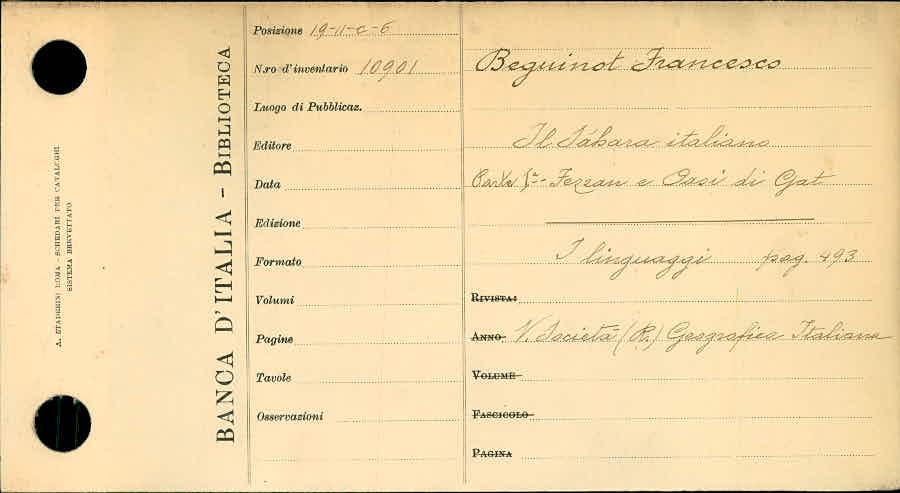 A. STADERINI ROMA - SCHEDARI PER CATALOGHI
SISTEMA BREVETTATO
BANCA D'ITALIA - BIBLIOTECA
Posizione 19-11-c-6
N.ro d'inventario 10901
Luogo di Pubblicaz.
Editore
Data
Edizione
Formato
Volumi
Pagine
Tavole
Osservazioni
Beguinot Francesco
Il Sáhara italiano
Parte Iª - Fezzan e Oasi di Gat
I linguaggi pag. 493
RIVISTA:
ANNO V. Società (R.) Geografica Italiana
VOLUME
FASCICOLO
PAGINA